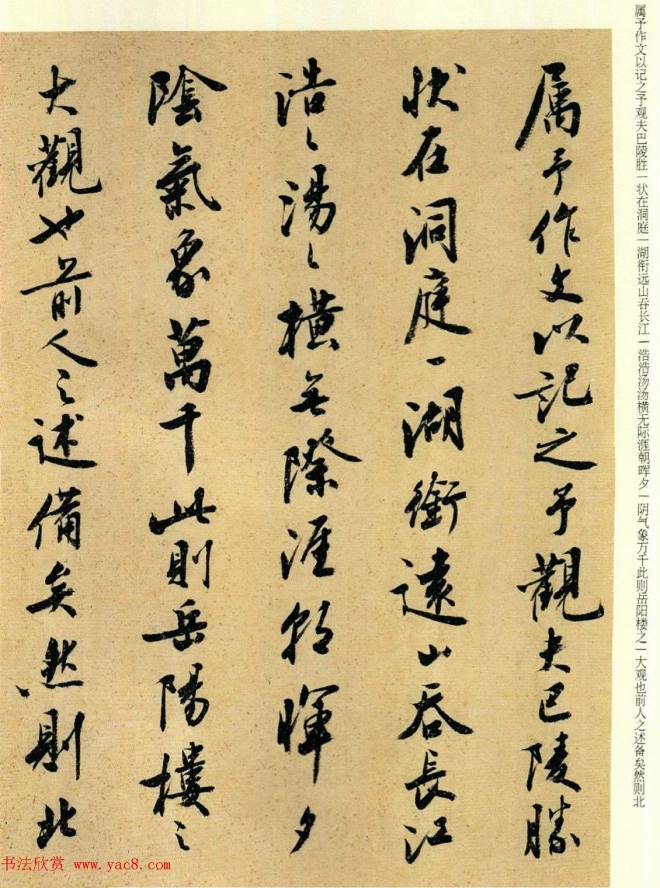 属予作文以记之予观夫巴陵胜一状在洞庭一湖衔远山吞长江一浩浩汤汤横无际涯朝晖夕一阴气象万千此则岳阳楼之一大观也前人之述备矣然则北
属予作文以记之予觀夫巴陵勝
状在洞庭一湖銜遠山吞長江
浩〻湯〻橫無際涯朝暉夕
陰氣象萬千此則岳陽樓之
大觀也前人之述備矣然則北
书法欣赏 www.yac8.com